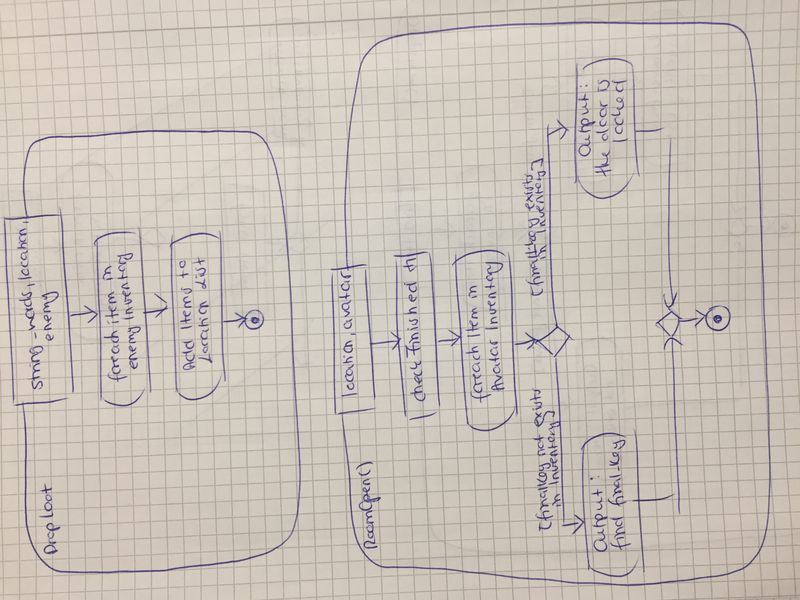 DropLoot
string-words, location,
enemy
foreach item in
enemy Inventory
Add Items to
Location List
RoomOpen()
location, avatar
check Finished
foreach Item in
Avatar Inventory
[finalKey not exists
in Inventory]
[finalKey exists
in Inventory]
Output:
find final_Key
Output:
the door is
locked